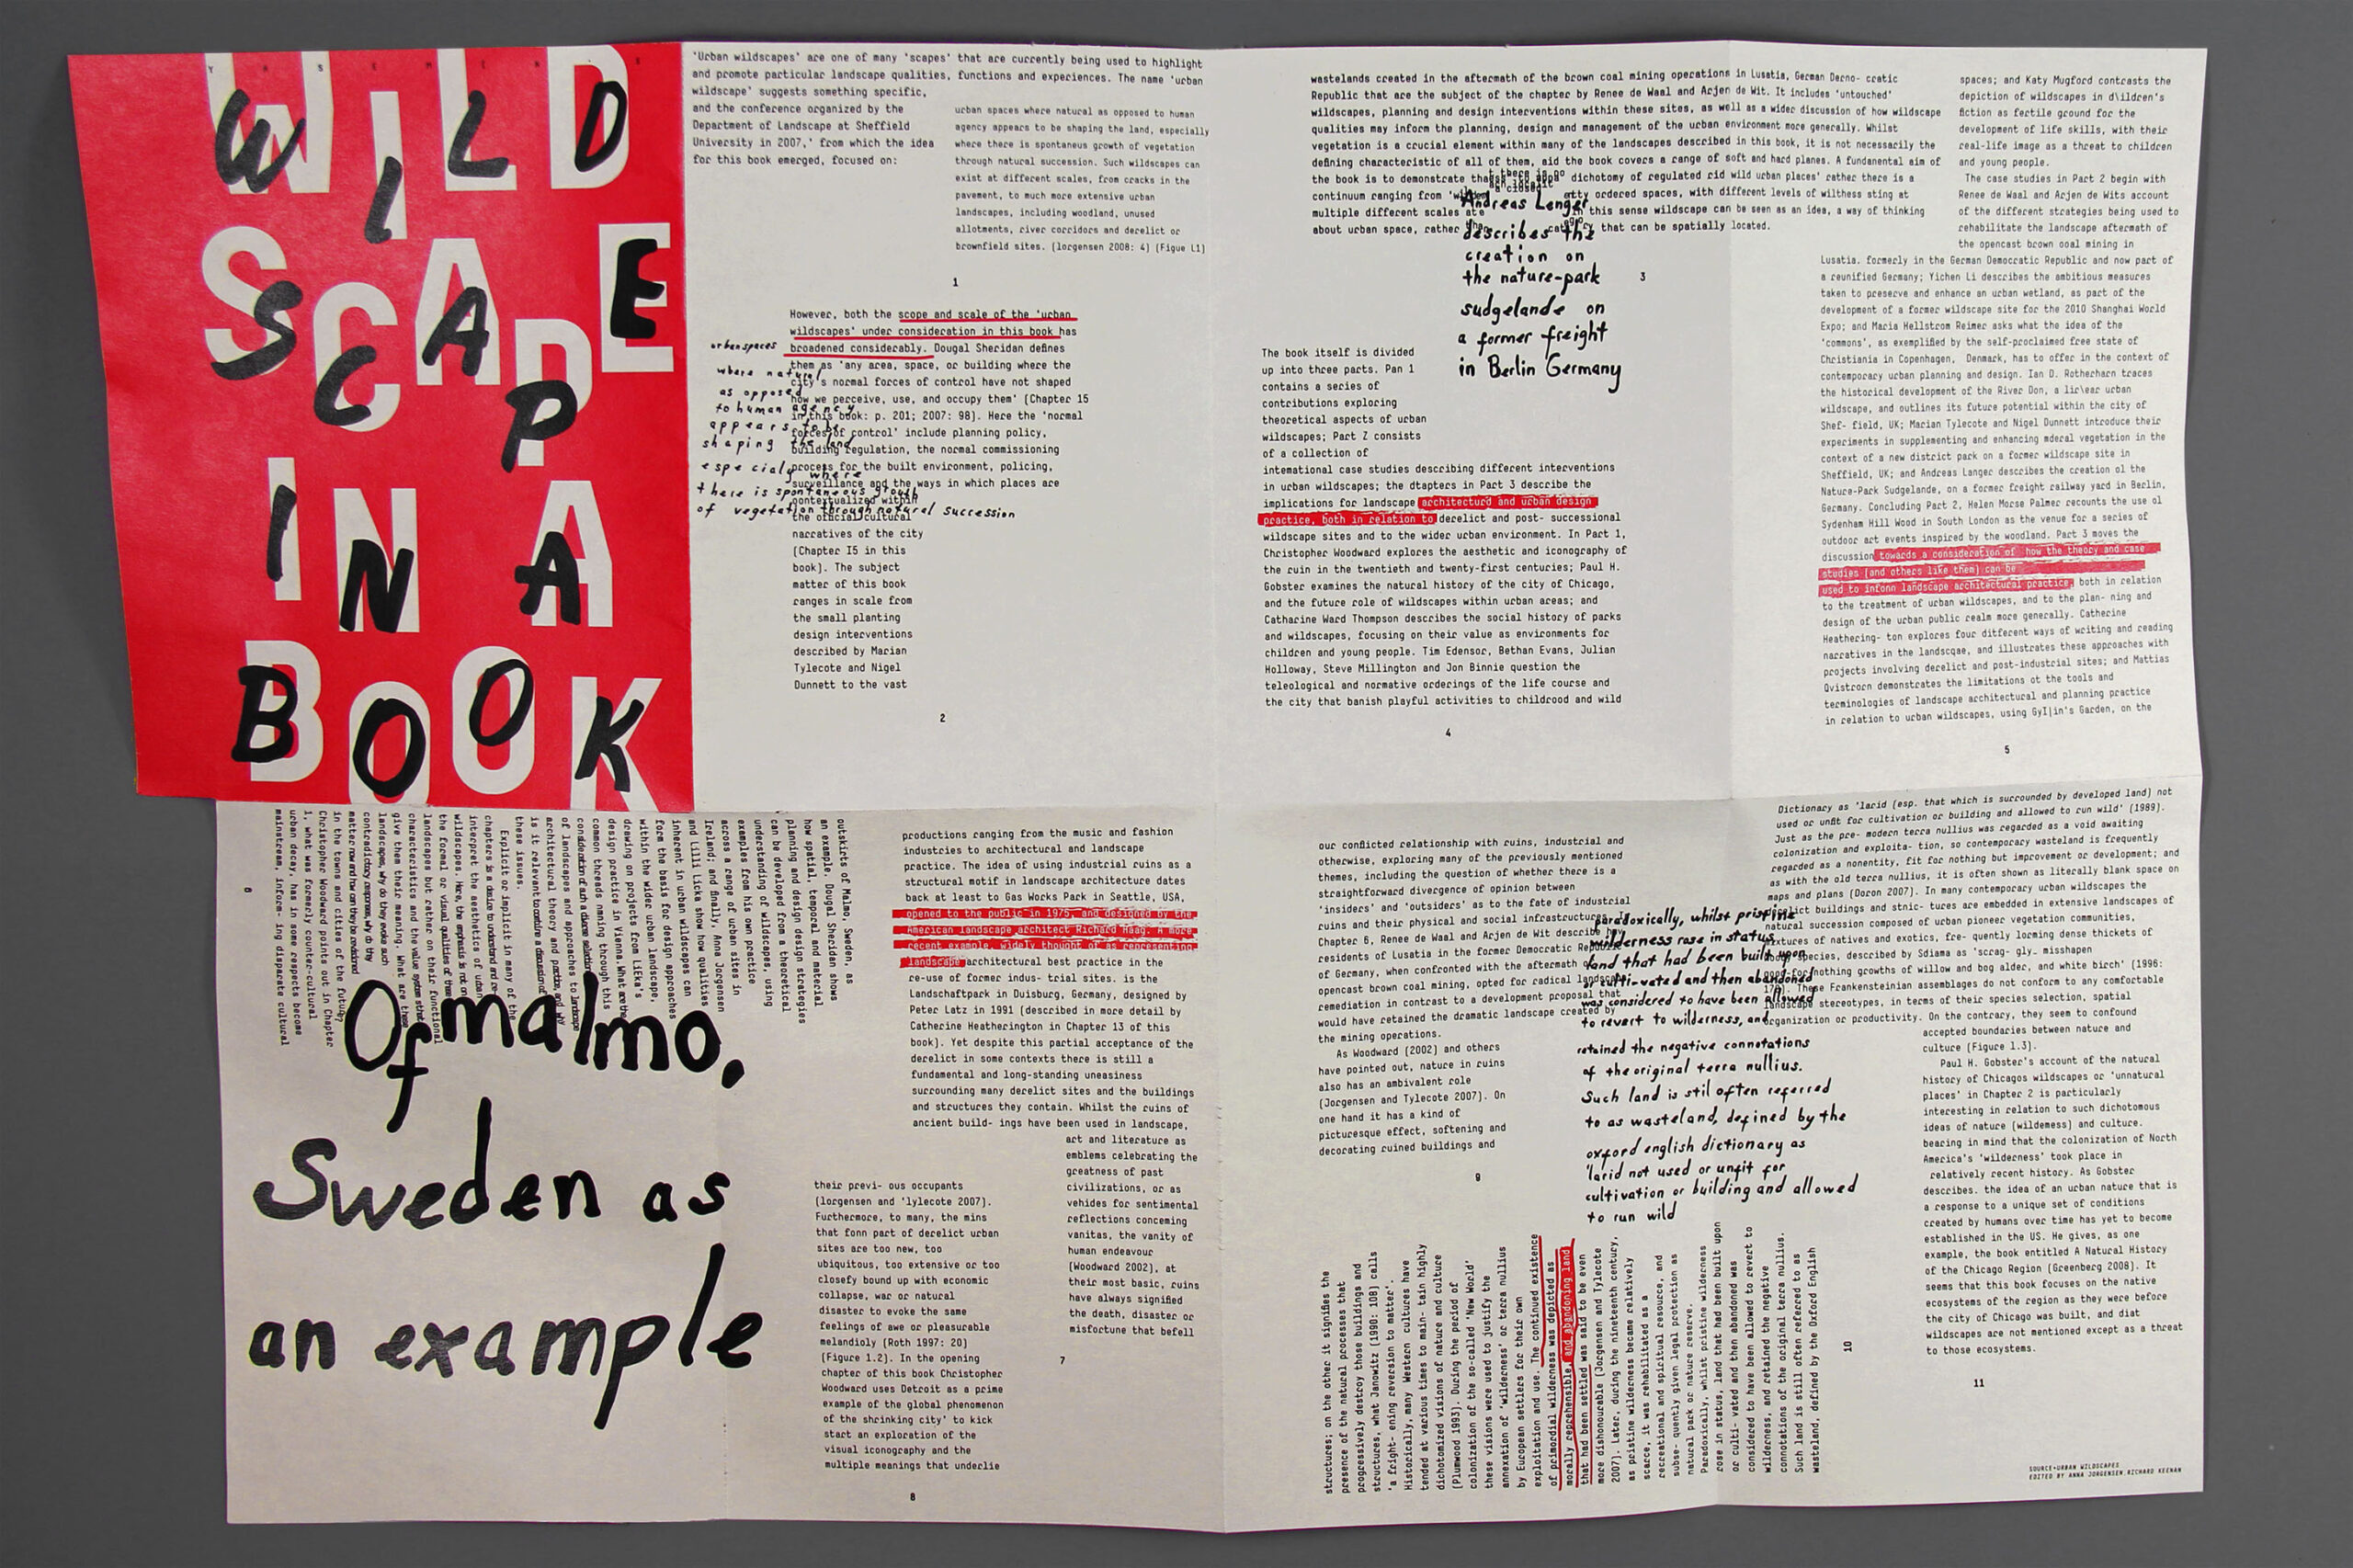 WILD
SCAPE
IN A
BOOK
WILD
SCAPE
IN A
BOOK
'Urban wildscapes' are one of many 'scapes' that are currently being used to highlight
and promote particular landscape qualities, functions and experiences. The name 'urban
wildscape' suggests something specific,
and the conference organized by the
Department of Landscape at Sheffield
University in 2007,' from which the idea
for this book emerged, focused on:
urban spaces where natural as opposed to human
agency appears to be shaping the land, especially
where there is spontaneus growth of vegetation
through natural succession. Such wildscapes can
exist at different scales, from cracks in the
pavement, to much more extensive urban
landscapes, including woodland, unused
allotments, river corridors and derelict or
brownfield sites. (lorgensen 2008: 4) (Figue L1)
1
However, both the scope and scale of the 'urban
wildscapes' under consideration in this book has
broadened considerably. Dougal Sheridan defines
them as 'any area, space, or building where the
city's normal forces of control have not shaped
how we perceive, use, and occupy them' (Chapter 15
in this book: p. 201; 2007: 98). Here the 'normal
forces of control' include planning policy,
building regulation, the normal commissioning
process for the built environment, policing,
surveillance and the ways in which places are
contextualized within
the official cultural
narratives of the city
(Chapter I5 in this
book). The subject
matter of this book
ranges in scale from
the small planting
design interventions
described by Marian
Tylecote and Nigel
Dunnett to the vast
2
urban spaces
where natural
as opposed
to human agency
appears to be
shaping the land
especialy where
there is spontaneous growth
of vegetation through natural succession
wastelands created in the aftermath of the brown coal mining operations in Lusatia, German Derno- cratic
Republic that are the subject of the chapter by Renee de Waal and Arjen de Wit. It includes 'untouched'
wildscapes, planning and design interventions within these sites, as well as a wider discussion of how wildscape
qualities may inform the planning, design and management of the urban environment more generally. Whilst
vegetation is a crucial element within many of the landscapes described in this book, it is not necessarily the
defining characteristic of all of them, aid the book covers a range of soft and hard planes. A fundanental aim of
the book is to demonstrate dichotomy of regulated rid wild urban places' rather there is a
continuum ranging from ordered spaces, with different levels of wilthess sting at
multiple different scales this sense wildscape can be seen as an idea, a way of thinking
about urban space, rather that can be spatially located.
Andreas Lenger
describes the
creation on
the nature-park
sudgelande on
a former freight
in Berlin Germany
3
The book itself is divided
up into three parts. Pan 1
contains a series of
contributions exploring
theoretical aspects of urban
wildscapes; Part Z consists
of a collection of
intemational case studies describing different interventions
in urban wildscapes; the dtapters in Part 3 describe the
implications for landscape architecturd and urban design
practice, both in relation to derelict and post- successional
wildscape sites and to the wider urban environment. In Part 1,
Christopher Woodward explores the aesthetic and iconography of
the ruin in the twentieth and twenty-first centuries; Paul H.
Gobster examines the natural history of the city of Chicago,
and the future role of wildscapes within urban areas; and
Catharine Ward Thompson describes the social history of parks
and wildscapes, focusing on their value as environments for
children and young people. Tim Edensor, Bethan Evans, Julian
Holloway, Steve Millington and Jon Binnie question the
teleological and normative orderings of the life course and
the city that banish playful activities to childrood and wild
4
spaces; and Katy Mugford contrasts the
depiction of wildscapes in d\ildren's
fiction as fertile ground for the
development of life skills, with their
real-life image as a threat to children
and young people.
The case studies in Part 2 begin with
Renee de Waal and Arjen de Wits account
of the different strategies being used to
rehabilitate the landscape aftermath of
the opencast brown ooal mining in
Lusatia. formerly in the German Democratic Republic and now part of
a reunified Germany; Yichen Li describes the ambitious measures
taken to preserve and enhance an urban wetland, as part of the
development of a former wildscape site for the 2010 Shanghai World
Expo; and Maria Hellstrom Reimer asks what the idea of the
'commons', as exemplified by the self-proclaimed free state of
Christiania in Copenhagen, Denmark, has to offer in the context of
contemporary urban planning and design. Ian D. Rotherharn traces
the historical development of the River Don, a lic\ear urban
wildscape, and outlines its future potential within the city of
Shef- field, UK; Marian Tylecote and Nigel Dunnett introduce their
experiments in supplementing and enhancing mderal vegetation in the
context of a new district park on a former wildscape site in
Sheffield, UK; and Andreas Langer describes the creation ol the
Nature-Park Sudgelande, on a former freight railway yard in Berlin,
Germany. Concluding Part 2, Helen Morse Palmer recounts the use ol
Sydenham Hill Wood in South London as the venue for a series of
outdoor art events inspired by the woodland. Part 3 moves the
discussion towards a consideration of how the theory and case
studies (and others like them) can be
used to infonn landscape architectural practice, both in relation
to the treatment of urban wildscapes, and to the plan- ning and
design of the urban public realm more generally. Catherine
Heathering- ton explores four different ways of writing and reading
narratives in the landscqae, and illustrates these approaches with
projects involving derelict and post-industrial sites; and Mattias
Qvistrorn demonstrates the limitations ot the tools and
terminologies of landscape architectural and planning practice
in relation to urban wildscapes, using GyI|in's Garden, on the
5
outskirts of Malmo, Sweden, as
an example. Dougal Sheridan shows
how spatial, temporal and material
planning and design strategies
can be developed from a theoretical
understanding of wildscapes, using
examples from his own practice
across a range of urban sites in
Ireland; and finally, Anna Jorgensen
and Lilli Licka show how qualities
inherent in urban wildscapes can
form the basis for design approaches
within the wider urban landscape,
drawing on projects from Lilli Licka's
design practice in Vienna. What are the
common threads naming through this
of landscapes and approaches to landscape
architectural theory and practice, and why
is it relevant to continue a discussion of
these issues.
Explicit or implicit in many of the
chapters is a desire to understand and re-
interpret the aesthetics of urban
wildscapes. Here, the emphasis is not on
the formal or visual qualities of these
landscapes but rather on their functional
characteristics and the value system that
give them their meaning. What are these
landscapes, why do they evoke such
contradictory responses, why do they
matter now and how can they be revisioned
in the towns and cities of the future?
Christopher Woodward points out in Chapter
1, what was formerly counter-cultural
urban decay, has in some respects become
mainstream, inform- ing disparate cultural
6
Of malmo,
Sweden as
an example
productions ranging from the music and fashion
industries to architectural and landscape
practice. The idea of using industrial ruins as a
structural motif in landscape architecture dates
back at least to Gas Works Park in Seattle, USA,
opened to the public in 1975, and designed by the
American landscape architect Richard Haag. A more
recent example, widely thought of as representing
landscape architectural best practice in the
re-use of former indus- trial sites. is the
Landschaftpark in Duisburg, Germany, designed by
Peter Latz in 1991 (described in more detail by
Catherine Heatherington in Chapter 13 of this
book). Yet despite this partial acceptance of the
derelict in some contexts there is still a
fundamental and long-standing uneasiness
surrounding many derelict sites and the buildings
and structures they contain. Whilst the ruins of
ancient build- ings have been used in landscape,
art and literature as
emblems celebrating the
greatness of past
civilizations, or as
vehides for sentimental
reflections conceming
vanitas, the vanity of
human endeavour
(Woodward 2002), at
their most basic, ruins
have always signified
the death, disaster or
misfortune that befell
7
their previ- ous occupants
(lorgensen and 'lylecote 2007).
Furthermore, to many, the mins
that fonn part of derelict urban
sites are too new, too
ubiquitous, too extensive or too
closefy bound up with economic
collapse, war or natural
disaster to evoke the same
feelings of awe or pleasurable
melandioly (Roth 1997: 20)
(Figure 1.2). In the opening
chapter of this book Christopher
Woodward uses Detroit as a prime
example of the global phenomenon
of the shrinking city' to kick
start an exploration of the
visual iconography and the
multiple meanings that underlie
8
our conflicted relationship with ruins, industrial and
otherwise, exploring many of the previously mentioned
themes, including the question of whether there is a
straightforward divergence of opinion between
'insiders' and 'outsiders' as to the fate of industrial
ruins and their physical and social infrastructures. In
Chapter 6, Renee de Waal and Arjen de Wit describe how
residents of Lusatia in the former Democratic Republic
of Germany, when confronted with the aftermath of
opencast brown coal mining, opted for radical landscape
remediation in contrast to a development proposal that
would have retained the dramatic landscape created by
the mining operations.
As Woodward (2002) and others
have pointed out, nature in ruins
also has an ambivalent role
(Jorgensen and Tylecote 2007). On
one hand it has a kind of
picturesque effect, softening and
decorating ruined buildings and
9
paradoxically, whilst pristine
wilderness rose in status,
land that had been built upon
or culti-vated and then abandoned
was considered to have been allowed
to revert to wilderness, and
retained the negative connotations
of the original terra nullius.
Such land is stil often referred
to as wasteland, defined by the
oxford english dictionary as
'larid not used or unfit for
cultivation or building and allowed
to run wild
structures; on the other it signifies the
presence of the natural processes that
progressively destroy those buildings and
structures, what Janowitz (1990: 108) calls
'a fright- ening reversion to matter'.
Historically, many Western cultures have
tended at various times to main- tain highly
dichotomized visions of nature and culture
(Plumwood 1993). During the period of
colonization of the so-called 'New World'
these visions were used to justify the
annexation of 'wilderness' or terra nullius
by European settlers for their own
exploitation and use. The continued existence
of primordial wilderness was depicted as
morally reprehensible, and abandoning land
that had been settled was said to be even
more dishonourable (Jorgensen and Tylecote
2007). Later, during the nineteenth century,
as pristine wilderness became relatively
scarce, it was rehabilitated as a
recreational and spiritual resource, and
subse- quently given legal protection as
natural park or nature reserve.
Paradoxically, whilst pristine wilderness
rose in status, land that had been built upon
or culti- vated and then abandoned was
considered to have been allowed to revert to
wilderness, and retained the negative
connotations of the original terra nullius.
Such land is still often referred to as
wasteland, defined by the Oxford English
10
Dictionary as 'larid (esp. that which is surrounded by developed land) not
used or unfit for cultivation or building and allowed to run wild' (1989).
Just as the pre- modern terra nullius was regarded as a void awaiting
colonization and exploita- tion, so contemporary wasteland is frequently
regarded as a nonentity, fit for nothing but improvement or development; and
as with the old terra nullius, it is often shown as literally blank space on
maps and plans (Doron 2007). In many contemporary urban wildscapes the
derelict buildings and stnic- tures are embedded in extensive landscapes of
natural succession composed of urban pioneer vegetation communities,
mixtures of natives and exotics, fre- quently lorming dense thickets of
species, described by Sdiama as 'scrag- gly_ misshapen
good-for-nothing growths of willow and bog alder, and white birch' (1996:
These Frankensteinian assemblages do not conform to any comfortable
landscape stereotypes, in terms of their species selection, spatial
organization or productivity. On the contrary, they seem to confound
accepted boundaries between nature and
culture (Figure 1.3).
Paul H. Gobster's account of the natural
history of Chicagos wildscapes or 'unnatural
places' in Chapter 2 is particularly
interesting in relation to such dichotomous
ideas of nature (wildemess) and culture.
bearing in mind that the colonization of North
America's 'wilderness' took place in
relatively recent history. As Gobster
describes. the idea of an urban nature that is
a response to a unique set of conditions
created by humans over time has yet to become
established in the US. He gives, as one
example, the book entitled A Natural History
of the Chicago Region (Greenberg 2008). It
seems that this book focuses on the native
ecosystems of the region as they were before
the city of Chicago was built, and diat
wildscapes are not mentioned except as a threat
to those ecosystems.
11
SOURCE+URBAN WILDSCAPES
EDITED BY ANNA JORGENSEN.RICHARD KEENAN